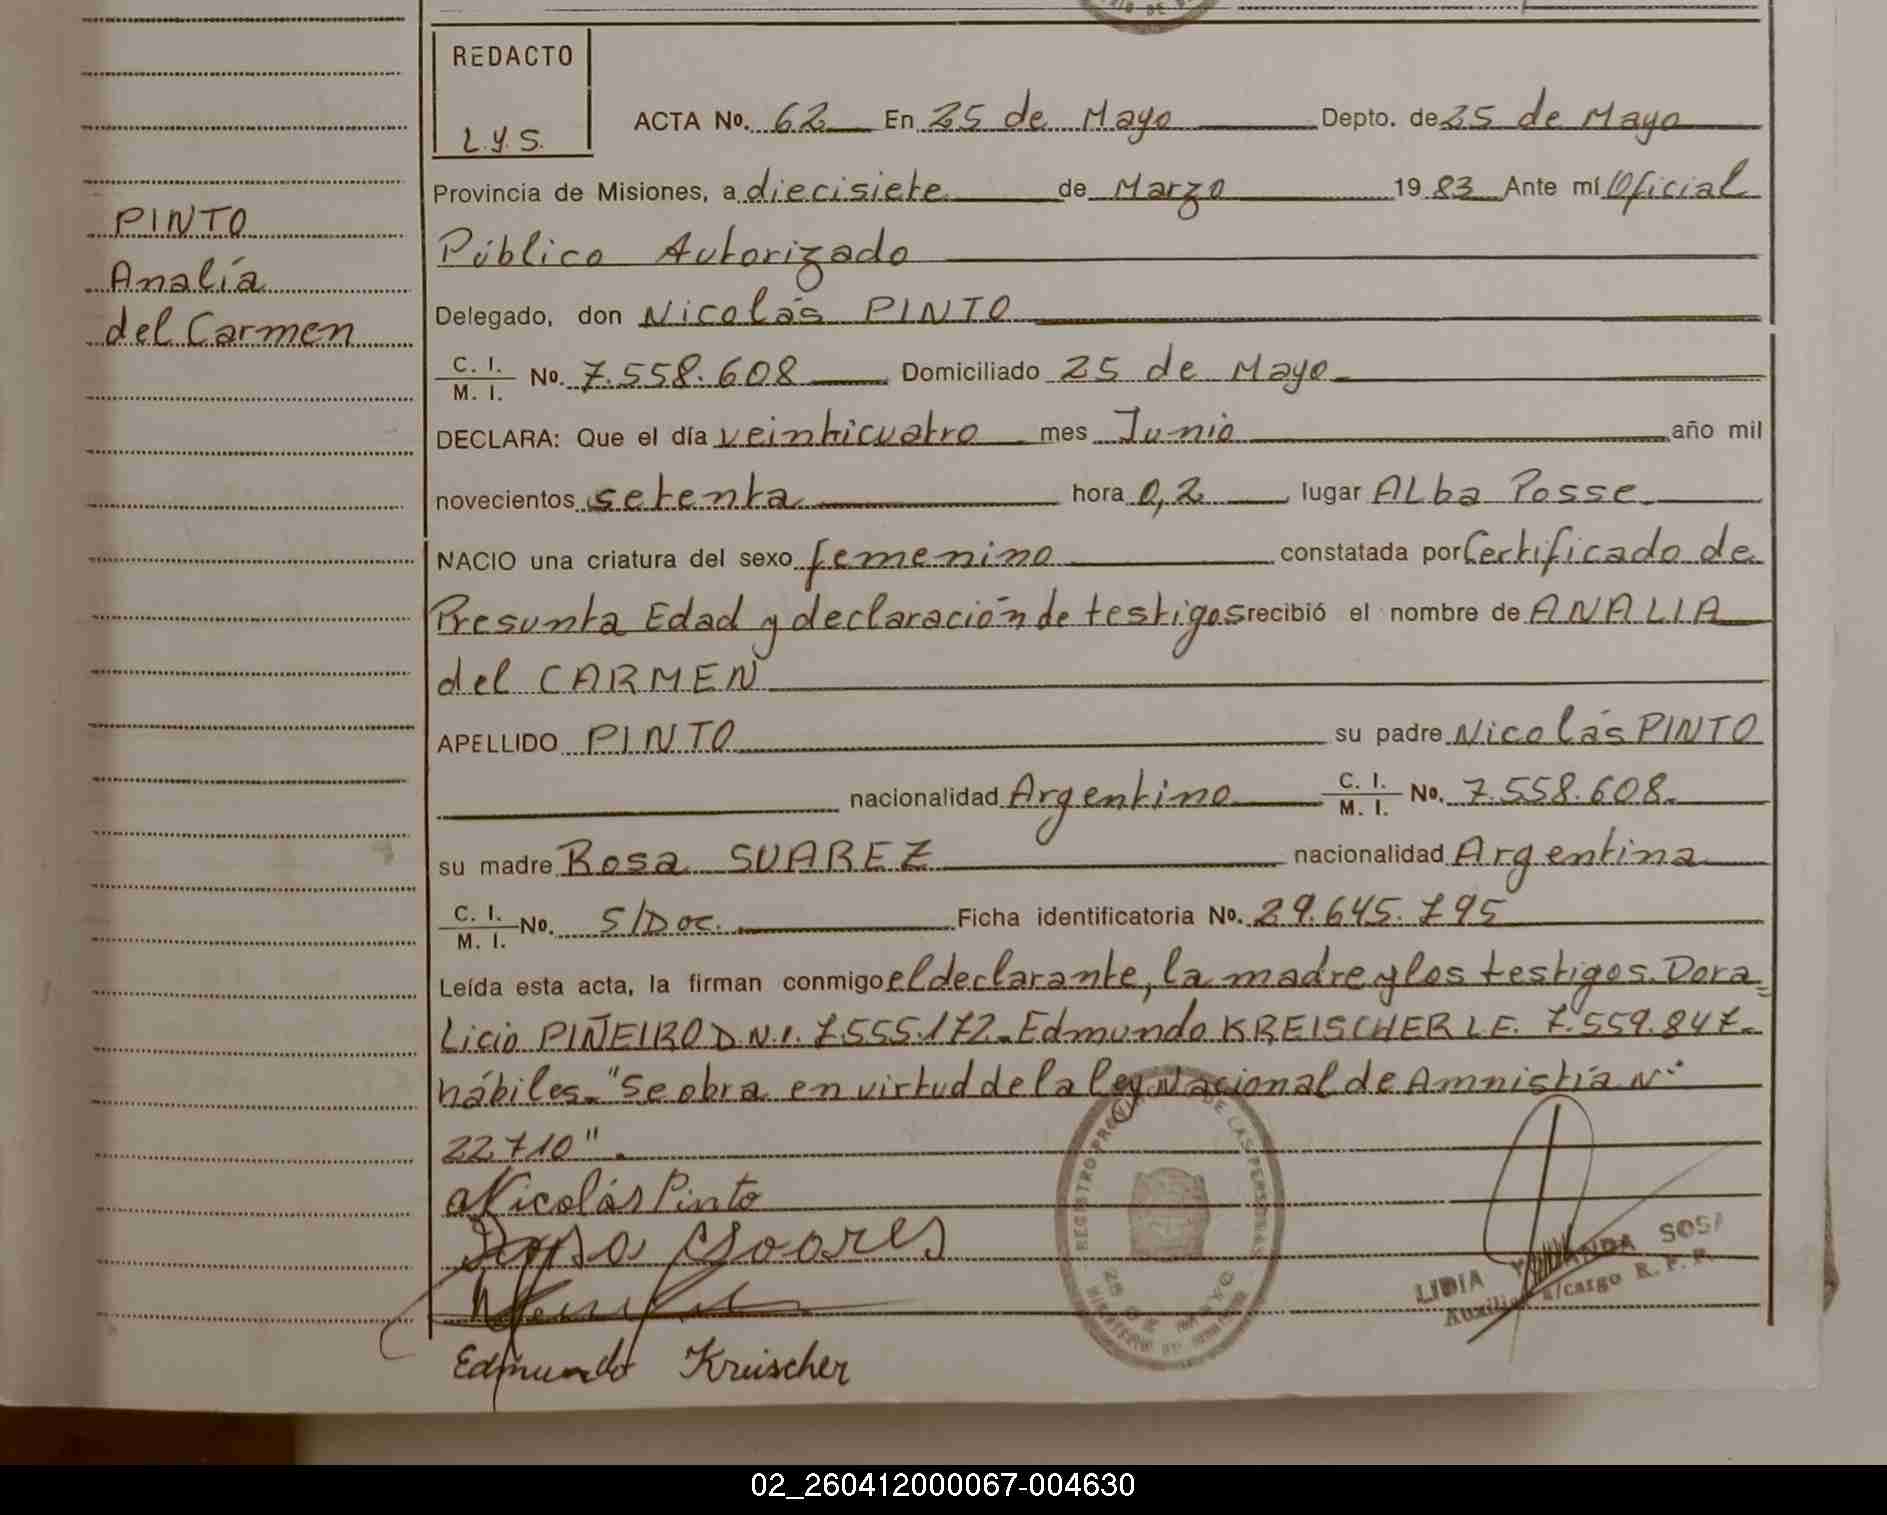 REDACTO
L.Y.S.
ACTA No. 62 En 25 de Mayo Depto. de 25 de Mayo
Provincia de Misiones, a diecisiete de Marzo 19 83 Ante mí Oficial
Público Autorizado
PINTO
Analía
del Carmen
Delegado, don Nicolás PINTO
C. I.
M. I. No. 7.558.608 Domiciliado 25 de Mayo
DECLARA: Que el día veinticuatro mes Junio año mil
novecientos setenta hora 0,2 lugar ALba Posse
NACIO una criatura del sexo femenino constatada por Certificado de
Presunta Edad y declaración de testigos recibió el nombre de ANALIA
del CARMEN
APELLIDO PINTO su padre Nicolás PINTO
nacionalidad Argentino C. I. M. I. No. 7.558.608.
su madre Rosa SUAREZ nacionalidad Argentina
C. I. M. I. No. S/Doc. Ficha identificatoria No. 29.645.795
Leída esta acta, la firman conmigo el declarante, la madre y los testigos. Dora=
Licio PIÑEIRO D.N.I. 7.555.172. Edmundo KREISCHER L.E. 7.559.847.
hábiles. "Se obra en virtud de la Ley Nacional de Amnistía N°
22.710".
Nicolás Pinto
Rosa Soares
Edmundo Kreischer
REGISTRO PROVINCIAL DE LAS PERSONAS
25 DE MAYO
MINISTERIO DE
LIDIA YOLANDA SOSA
Auxiliar a/cargo R. P. P.
02_260412000067-004630